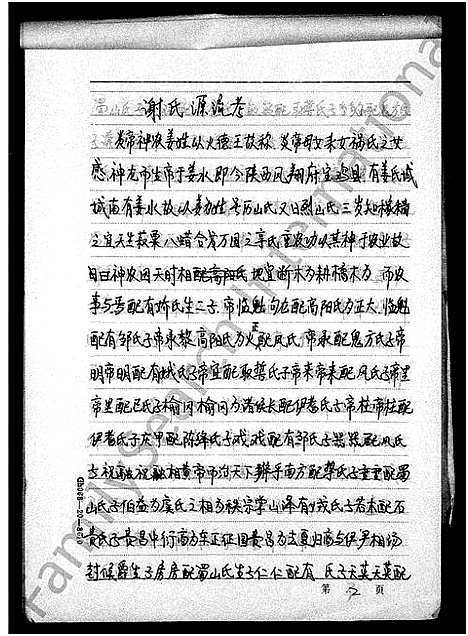 谢氏源流考
炎帝神农姜姓以火德王故称炎帝母女未女禍氏之女
感神龙而生帝于姜水即今陕西凤翔府宝鸡县有姜氏城
城南有姜水故以姜为姓号历山氏又曰烈山氏三岁知稼穑
之宜天生菽粟八蜡合戊万国之享氏重农功以其种于农业故
曰神农因天时相配高阳氏地宜断木为耜橋木为而农
事与焉配有娇氏生二子帝临魁句龙配高阳氏为正大临魁
配有邹氏子帝承黎高阳氏为火正配风氏帝承配鬼方氏子帝
明帝明配有城氏子帝宜配娶訾氏子帝来帝来配风氏子帝里
帝里配已氏子榆冈榆冈为诸侯长配伊耆氏子帝柱帝柱配
伊耆氏子灰甲配陈锋氏子戏戏配有邹氏子器器配风氏
子祝融祝融相黄帝而治天下耕于南方配孽氏子重重配蜀
山氏子伯益为虞氏之相为秩宗掌山泽有娀氏子若木配石
黄氏子黄昌中衍为车正征因黄昌为去夏归商与伊尹相汤
封候爵生子房房配蜀山氏生子仁仁配有 氏子天英天英配
第 2 页
GD008-20-86
FamilySearch International